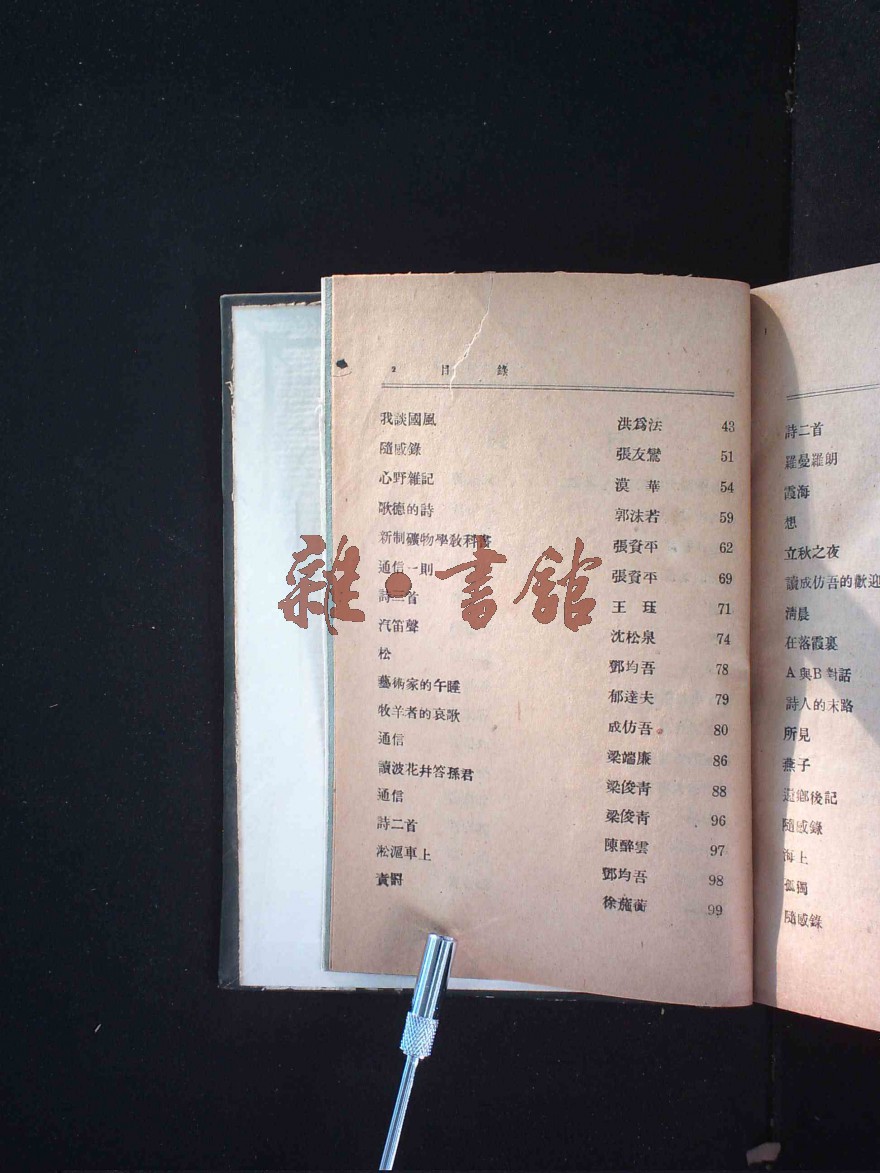 2 目 錄
我談國風 洪爲法 43
隨感錄 張友鸞 51
心野雜記 漠華 54
歌德的詩 郭沫若 59
新制礦物學教科書 張資平 62
通信一則 張資平 69
詩三首 王玨 71
汽笛聲 沈松泉 74
松 鄧均吾 78
藝術家的午睡 郁達夫 79
牧羊者的哀歌 成仿吾 80
通信 梁端廉 86
讀波花井答孫君 梁俊靑 88
通信 梁俊靑 96
詩二首 陳醉雲 97
淞滬車上 鄧均吾 98
99
詩二首
羅曼羅朗
霞海
想
立秋之夜
讀成仿吾的歡迎
淸晨
在落霞裏
A與B對話
詩人的末路
所見
燕子
還鄉後記
隨感錄
海上
孤獨
隨感錄
雜·書館